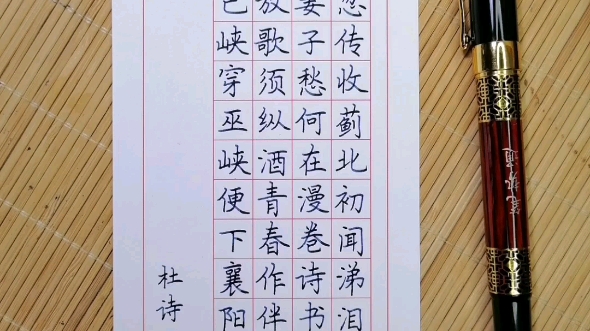 忽传收蓟北初闻涕泪
妻子愁何在漫卷诗书
放歌须纵酒青春作伴
巴峡穿巫峡便下襄阳
杜诗